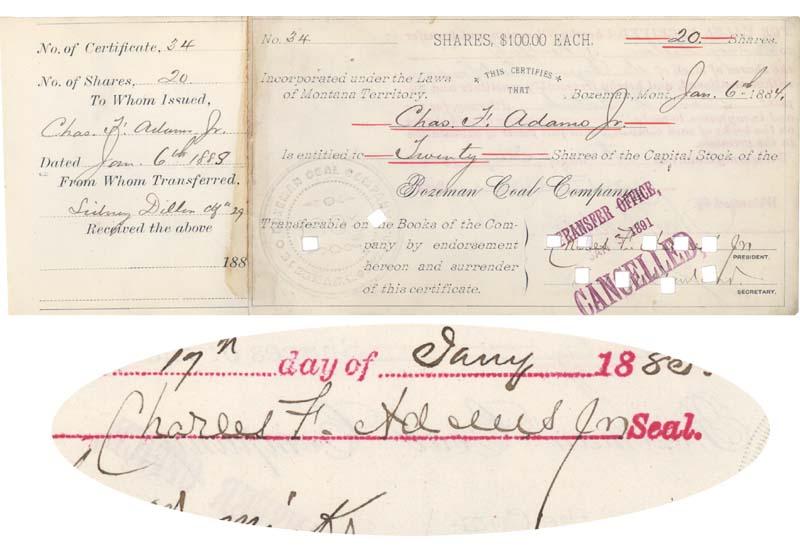 No. of Certificate, 34
No. of Shares, 20
To Whom Issued,
Chas. F. Adams, Jr.
Dated Jan. 6th 1888
From Whom Transferred,
Sidney Dillon
Received the above
188
No. 34. SHARES, $100.00 EACH. 20 Shares.
Incorporated under the Laws
of Montana Territory.
THIS CERTIFIES
THAT
Bozeman, Mont. Jan. 6th 1884.
Chas. F. Adams Jr.
is entitled to Twenty Shares of the Capital Stock of the
Bozeman Coal Company,
Transferable on the Books of the Com-
pany by endorsement
hereon and surrender
of this certificate.
BOZEMAN COAL COMPANY
TRANSFER OFFICE,
1891
CANCELLED,
Charles F. Jr
PRESIDENT.
SECRETARY.
17th day of Jany 188
Charles F. Adams Jr Seal.